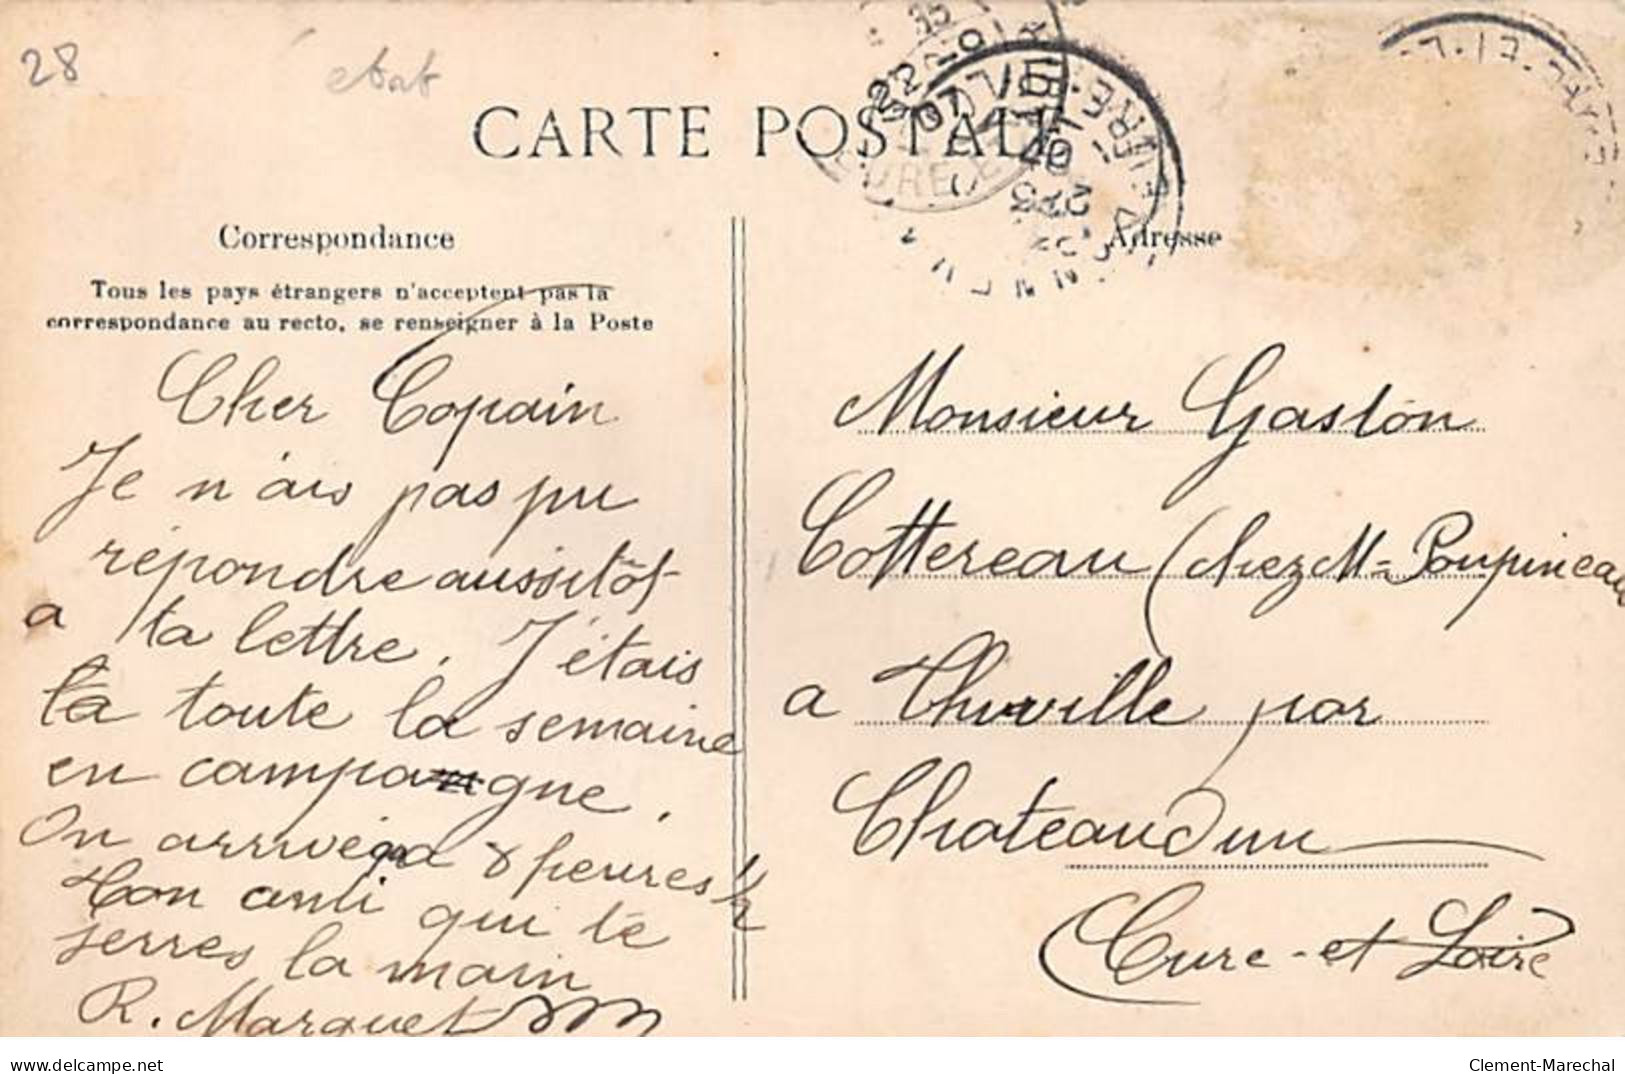 28
etat
CARTE POSTALE
Correspondance
Tous les pays étrangers n'acceptent pas la
correspondance au recto, se renseigner à la Poste
Cher Copain
Je n'ais pas pu
répondre aussitôt
a ta lettre. J'étais
ta toute la semaine
en campagne.
On arrivera 8 heures 1/2
Ton ami qui te
serres la main
R. Marquet
Adresse
Monsieur Gaston
Cottereau (chez M= Poupineau
a Thiville par
Chateaudun
Eure-et Loire
delcampe.net
Clement-Marechal